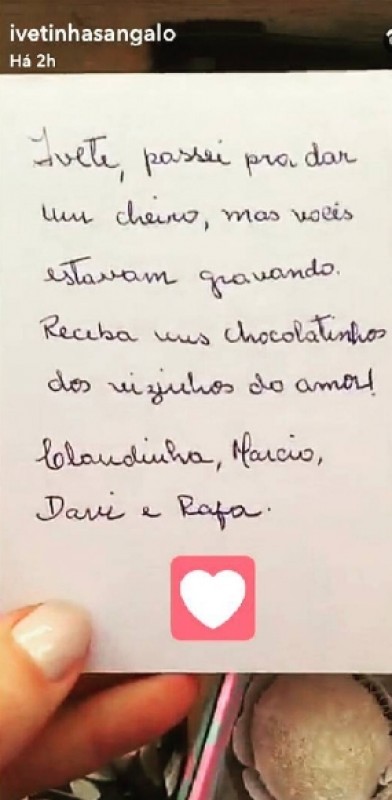 ivetinhasangalo
Há 2h
Ivete, passei pra dar
um cheiro, mas vocês
estavam gravando.
Receba uns chocolatinhos
dos vizinhos do amor!
Claudinha, Marcio,
Davi e Rafa.